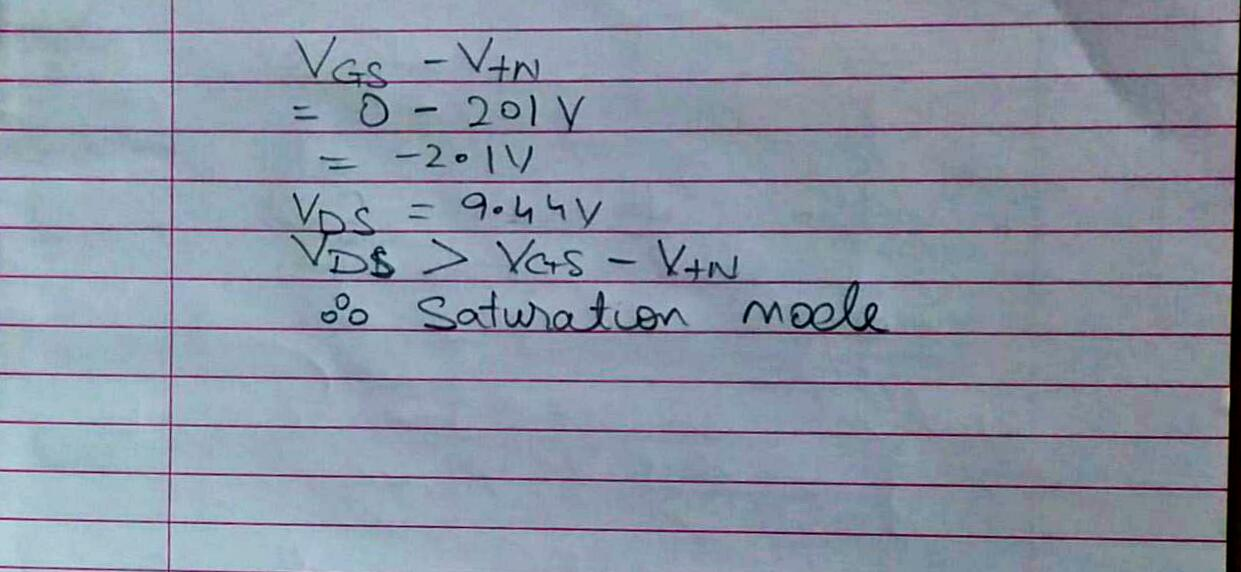 VGS - VtN
= 0 - 201V
= -2.1V
VDS = 9.44V
VDS > VGS - VtN
∴ Saturation mode